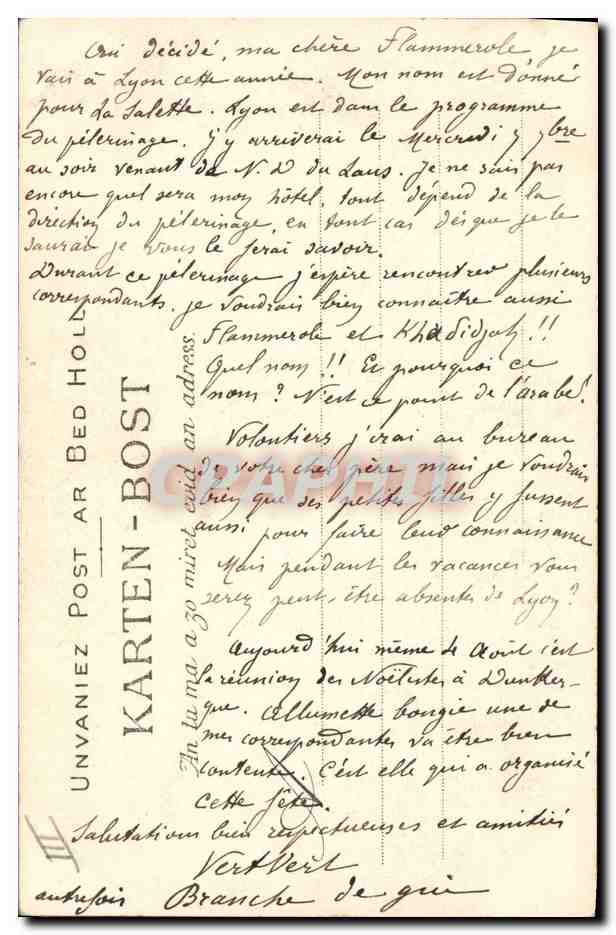 Oui décidé, ma chère Flammerole je
vais à Lyon cette année. Mon nom est donné
pour La Salette. Lyon est dans le programme
du pélerinage. J'y arriverai le Mercredi 7 7bre
au soir venant de N. D du Laus. Je ne sais pas
encore quel sera mon hôtel, tout dépend de la
direction du pélerinage, en tout cas dès que je le
saurai je vous le ferai savoir.
Durant ce pélerinage j'espère rencontrer plusieurs
correspondants. je voudrais bien connaître aussi
Flammerole et Khadidjah !!
Quel nom !! Et pourquoi ce
nom ? N'est ce point de l'arabe ?
Volontiers j'irai au bureau
de votre cher père mais je voudrais
bien que ses petites filles y fussent
aussi pour faire leur connaissance
Mais pendant les vacances vous
serez peut-être absentes de Lyon ?
Aujourd'hui même 4 Août c'est
la réunion des Noëlistes à Dunker-
que. Allumette bougie une de
mes correspondantes va être bien
contente. C'est elle qui a organisé
cette fête.
Salutations bien respectueuses et amitiés
VertVert
autrefois Branche de gui
III
UNVANIEZ POST AR BED HOLL
KARTEN-BOST
An tu ma a zo miret evid an adress.
CPAPHIL